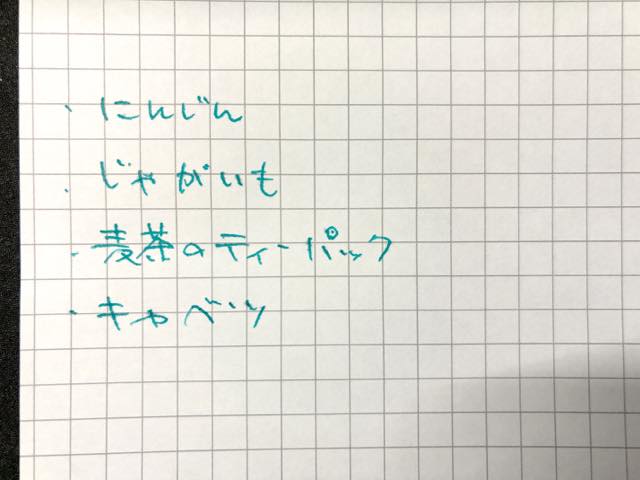 ・にんじん
・じゃがいも
・麦茶のティーパック
・キャベツ